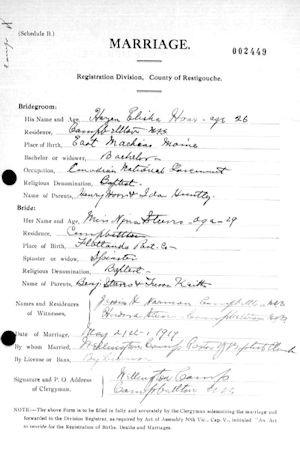 (Schedule B.)
MARRIAGE.
002449
Registration Division, County of Restigouche.
Bridegroom:
His Name and Age, Hazen Elisha Hoar age 26
Residence, Campbellton N.B.
Place of Birth, East Machias Maine
Bachelor or widower, Bachelor
Occupation, Canadian National
Religious Denomination, Baptist
Name of Parents, Henry Hoar & Ida Huntly
Bride:
Her Name and Age, Stevens age 29
Residence, Campbellton
Place of Birth, Flatlands Rest. Co
Spinster or widow, Spinster
Religious Denomination, Baptist
Name of Parents, Keith
Names and Residences
of Witnesses,
Harman Campbellton N.B.
Campbellton N.B.
Date of Marriage, May 21st 1919
By whom Married, Wellington Camp Pastor Baptist Church
By License or Bans, By License
Signature and P. O. Address
of Clergyman,
Wellington Camp
Campbellton N.B.
NOTE.—The above Form is to be filled in fully and accurately by the Clergyman solemnizing the marriage and
forwarded to the Division Registrar, as required by Act of Assembly 50th Vic., Cap. V., intituled "An Act
to provide for the Registration of Births, Deaths and Marriages.